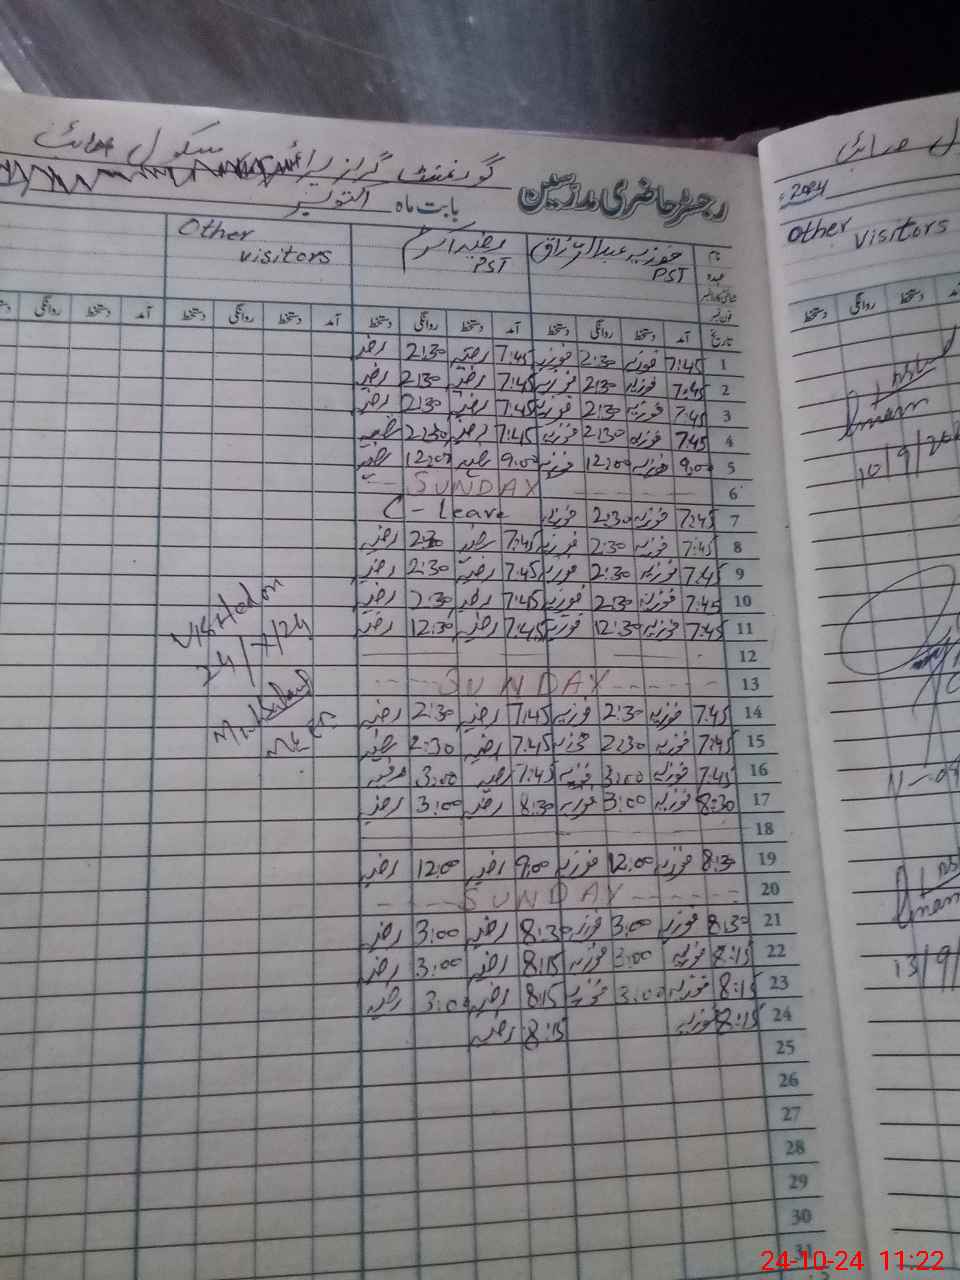 گورنمنٹ گرلز پرائمری سکول
رجسٹر حاضری مدرسین
بابت ماہ اکتوبر
نام فوزیہ عبدالرزاق رضیہ اکرم Other visitors
عہدہ PST PST
تاریخ آمد دستخط روانگی دستخط آمد دستخط روانگی دستخط آمد دستخط روانگی دستخط آمد دستخط روانگی
1 7:45 فوزیہ 2:30 فوزیہ 7:45 رضیہ 2:30 رضیہ
2 7:45 فوزیہ 2:30 فوزیہ 7:45 رضیہ 2:30 رضیہ
3 7:45 فوزیہ 2:30 فوزیہ 7:45 رضیہ 2:30 رضیہ
4 7:45 فوزیہ 2:30 فوزیہ 7:45 رضیہ 2:30 رضیہ
5 9:00 فوزیہ 12:00 فوزیہ 9:00 رضیہ 12:00 رضیہ
6 SUNDAY
7 7:45 فوزیہ 2:30 فوزیہ C - Leave
8 7:45 فوزیہ 2:30 فوزیہ 7:45 رضیہ 2:30 رضیہ
9 7:45 فوزیہ 2:30 فوزیہ 7:45 رضیہ 2:30 رضیہ
10 7:45 فوزیہ 2:30 فوزیہ 7:45 رضیہ 2:30 رضیہ
11 7:45 فوزیہ 12:30 فوزیہ 7:45 رضیہ 12:30 رضیہ
12
13 SUNDAY
14 7:45 فوزیہ 2:30 فوزیہ 7:45 رضیہ 2:30 رضیہ
15 7:45 فوزیہ 2:30 فوزیہ 7:45 رضیہ 2:30 رضیہ
16 7:45 فوزیہ 3:00 فوزیہ 7:45 رضیہ 3:00 رضیہ
17 8:30 فوزیہ 3:00 فوزیہ 8:30 رضیہ 3:00 رضیہ
18
19 8:30 فوزیہ 12:00 فوزیہ 9:00 رضیہ 12:00 رضیہ
20 SUNDAY
21 8:30 فوزیہ 3:00 فوزیہ 8:30 رضیہ 3:00 رضیہ
22 8:15 فوزیہ 3:00 فوزیہ 8:15 رضیہ 3:00 رضیہ
23 8:15 فوزیہ 3:00 فوزیہ 8:15 رضیہ 3:00 رضیہ
24 8:15 فوزیہ 8:15 رضیہ
25
26
27
28
29
30
31
Visited on
2024
Other visitors
دستخط روانگی دستخط
24-10-24 11:22